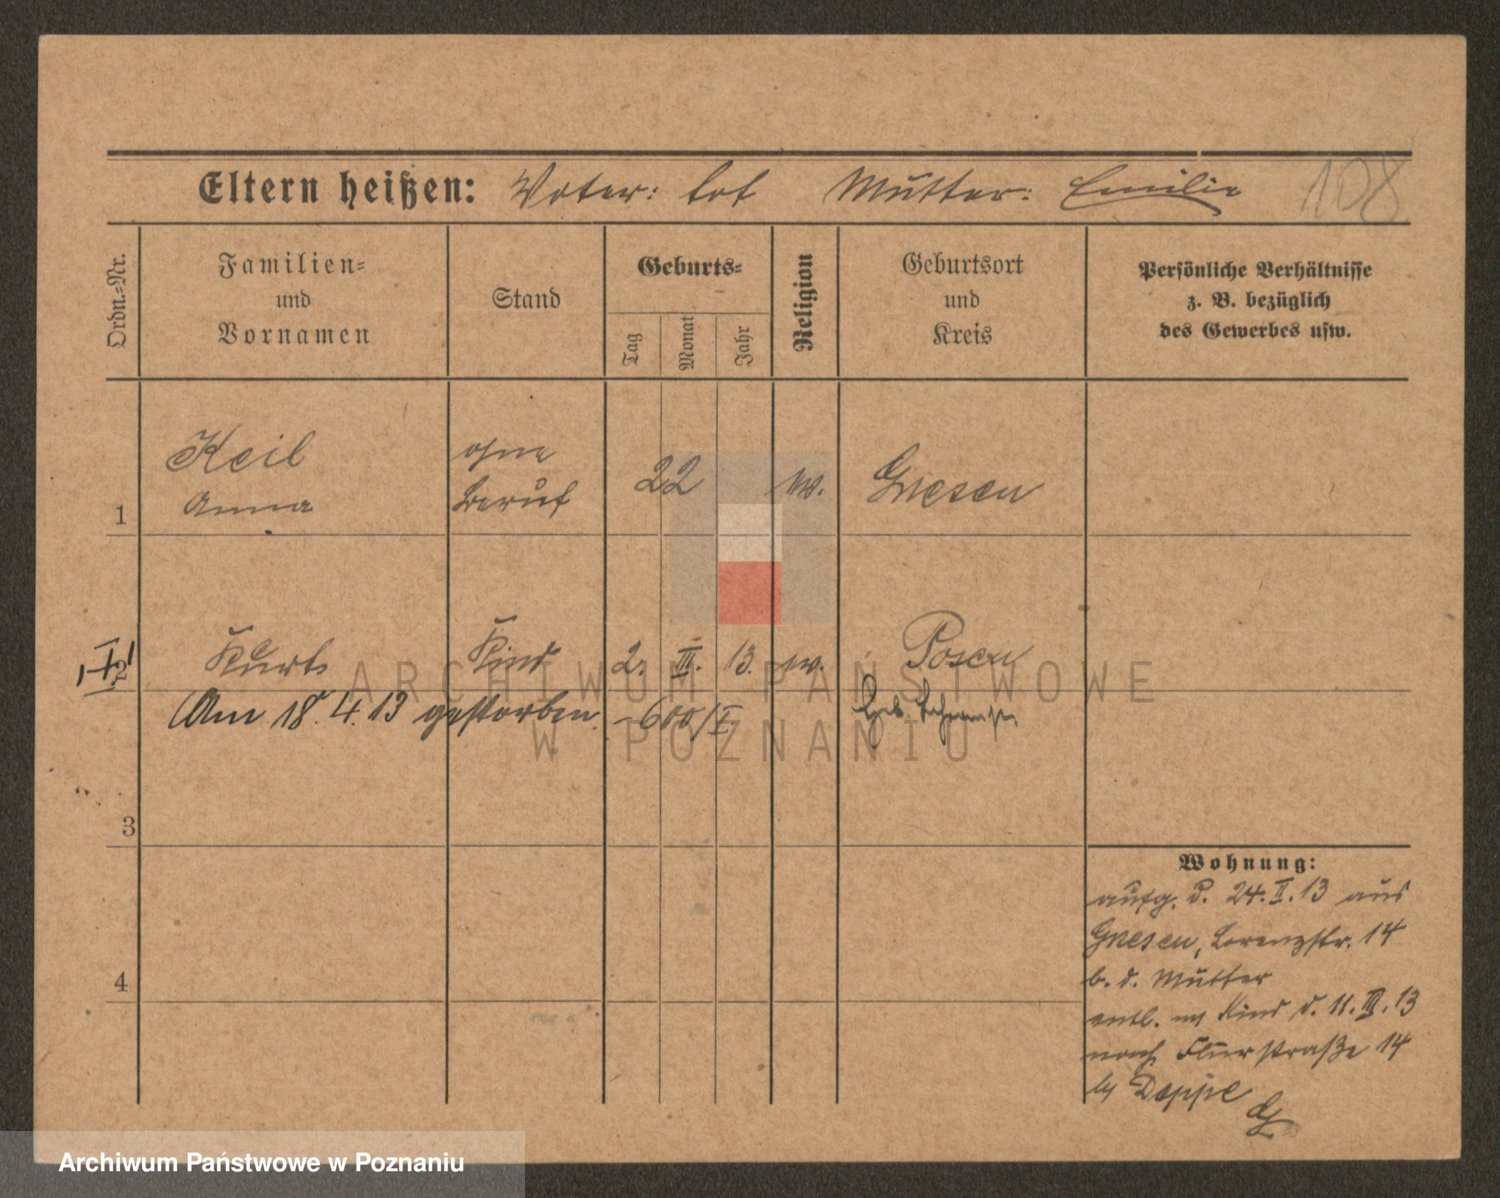 Eltern heißen: Vater: tot Mutter: Emilie 108
Ordn.-Nr.
Familien-
und
Vornamen
Stand
Geburts-
Tag
Monat
Jahr
Religion
Geburtsort
und
Kreis
Persönliche Verhältnisse
z. B. bezüglich
des Gewerbes usw.
1
Keil
Anna
ohne
Beruf
22
Gnesen
2
Kurt
Kind
2. III. 13.
Posen
Am 18. 4. 13 gestorben. - 600/I
Geb.
3
4
Wohnung:
aufg. d. 24. II. 13 aus
Gnesen, Lorenzstr. 14
b. d. Mutter
entl. m Kind d. 11. III. 13
nach Flurstraße 14
by Deppe
ARCHIWUM PAŃSTWOWE
W POZNANIU
Archiwum Państwowe w Poznaniu